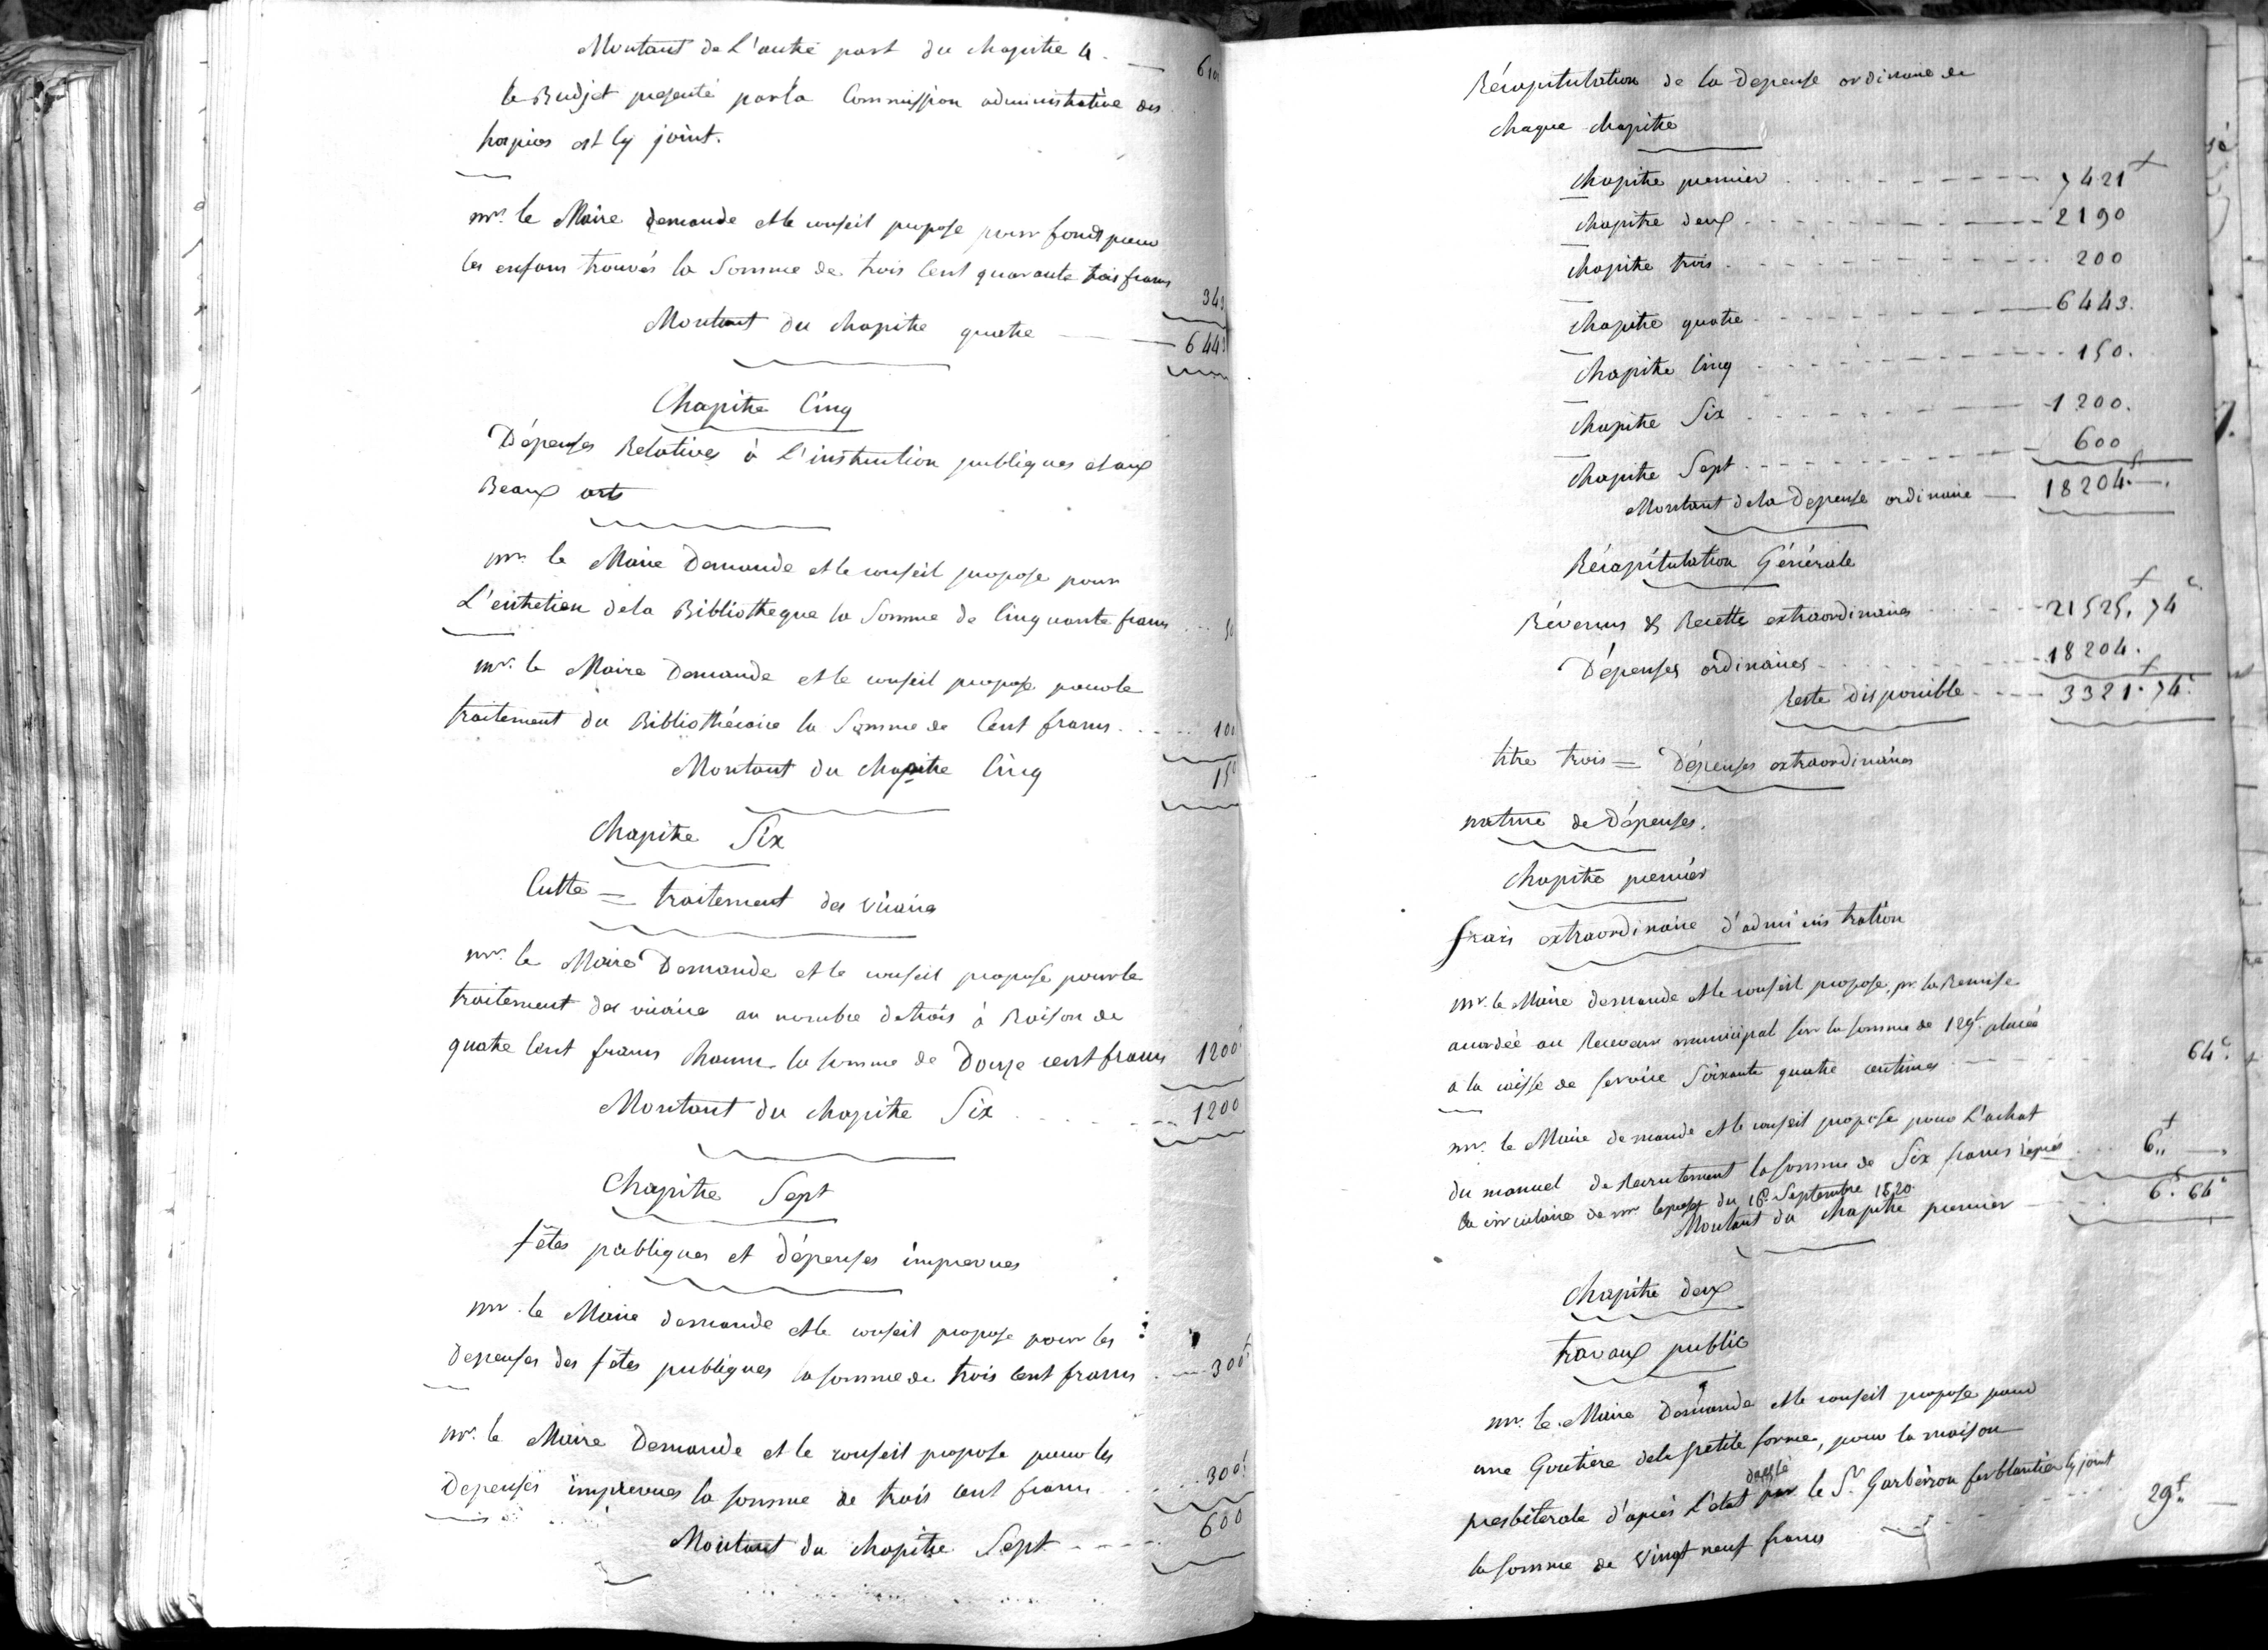 Montant de L'autre part du chapitre 4. — 610
le Budjet presenté par la Commission administrative des
hospices est cy joint.
mr. le Maire demande et le conseil propose pour fonds pour
les enfans trouvés la Somme de trois cent quarante trois francs
343
Montant du chapitre quatre — 6443
Chapitre Cinq
Dépenses Relatives à L'instruction publiques et aux
Beaux arts
mr. le Maire Demande et le conseil propose pour
L'entretien de la Bibliotheque la Somme de Cinquante francs . . . 50
mr. le Maire Demande et le conseil propose pour le
traitement du Bibliothécaire la Somme de Cent francs . . . . 100
Montant du chapitre Cinq 150
Chapitre Six
Culte = traitement des vicaires
mr. le Maire Demande et le conseil propose pour le
traitement des vicaires au nombre de trois à Raison de
quatre Cent francs chacun la somme de Douze cent francs 1200
Montant du chapitre Six . . . 1200
Chapitre Sept
fêtes publiques et dépenses imprevues
mr. le Maire demande et le conseil propose pour les
Depenses des fêtes publiques la somme de trois Cent francs . — 300f
mr. le Maire Demande et le conseil propose pour les
Depenses imprevues la somme de trois cent francs . . . 300f
Montant du chapitre Sept - - - - 600
Récapitulation de la Depense ordinaire de
chaque chapitre
chapitre premier . . . 7421f
chapitre deux . . . 2190
chapitre trois . . . 200
chapitre quatre . . . 6443.
chapitre Cinq . . . 150.
chapitre Six . . . 1200.
chapitre Sept . . . 600
Montant de la Depense ordinaire — 18204f —.
Récapitulation Générale
Révenus & Recettes extraordinaires . . . 21525f, 74c
Dépenses ordinaires . . . 18204.
Reste disponible - - - - 3321f. 74c
titre trois = Dépenses extraordinaires
nature de Dépenses.
chapitre premier
frais extraordinaire d'administration
mr. le Maire demande et le conseil propose pr. la Remise
accordée au Receveur municipal sur la somme de 129f placée
a la caisse de service Soixante quatre centimes . . . 64c.
mr. le Maire demande et le conseil propose pour L'achat
du manuel de Recrutement la somme de Six francs d'après . . . 6f,, —.
la circulaire de mr le prefet du 16 Septembre 1820.
Montant du chapitre premier . . . 6f. 64c
Chapitre deux
travaux public
mr. le Maire Demande et le conseil propose pour
une Goutière de la petite forme, pour la maison
presbiterale d'après L'etat dressé par le Sr. Garberon ferblantier cy joint
la somme de vingt neuf francs . . . 29f,, —